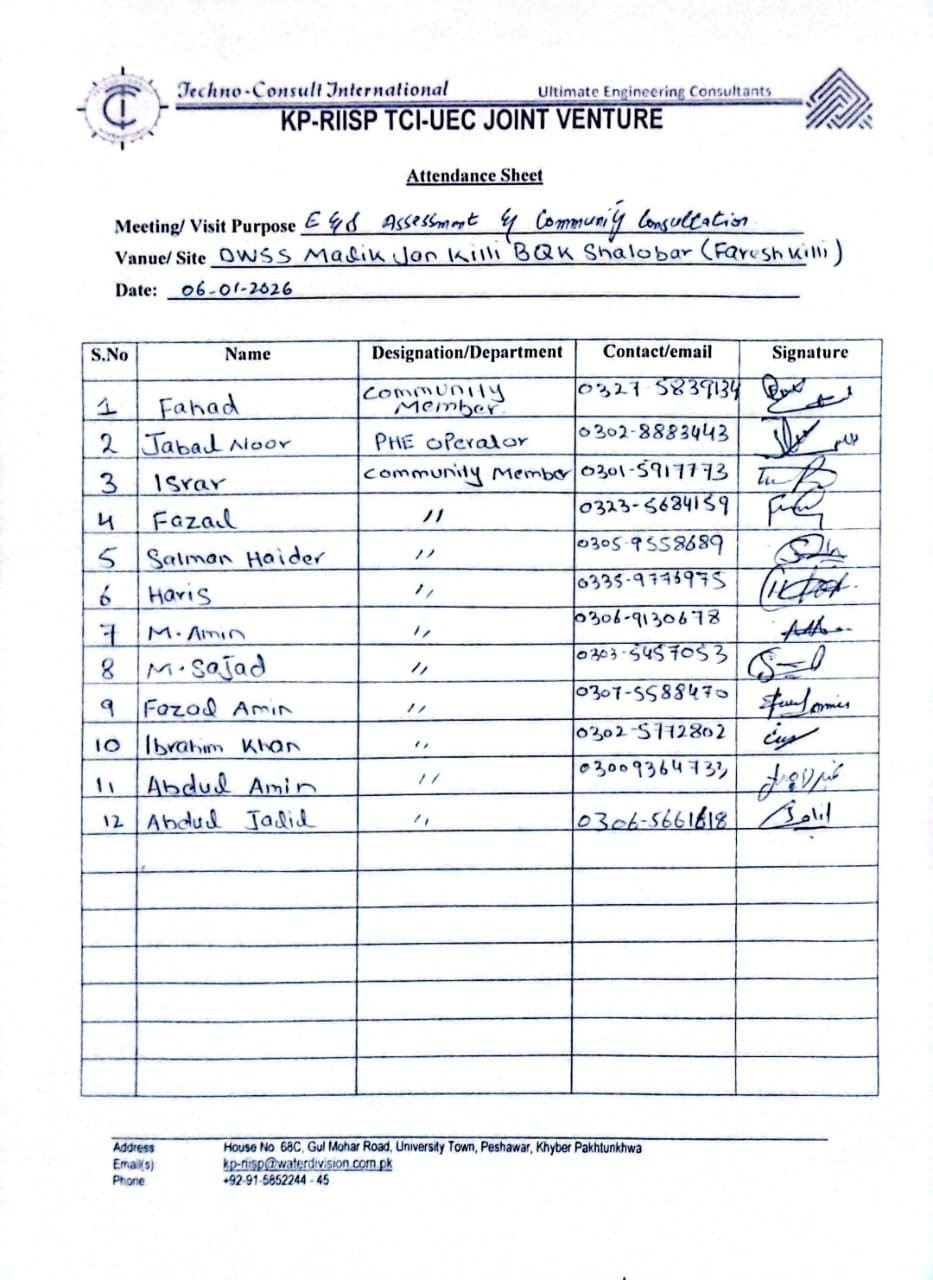 Techno-Consult International Ultimate Engineering Consultants
KP-RIISP TCI-UEC JOINT VENTURE
Attendance Sheet
Meeting/ Visit Purpose E & S Assessment & Community Consultation
Vanue/ Site DWSS Madik Jan Killi BQK Shalobar (Faresh Killi)
Date: 06-01-2026
S.No Name Designation/Department Contact/email Signature
1 Fahad Community Member 0327-5839134
2 Jabad Noor PHE Operator 0302-8883443
3 Israr Community Member 0301-5917773
4 Fazad " 0323-5684159
5 Salman Haider " 0305-9558689
6 Haris " 0335-9776975
7 M. Amin " 0306-9130678
8 M. Sajad " 0303-5457053
9 Fazad Amin " 0307-5588470
10 Ibrahim Khan " 0302-5772802
11 Abdul Amin " 03009364733
12 Abdul Jadid " 0306-5661618
Address House No. 68C, Gul Mohar Road, University Town, Peshawar, Khyber Pakhtunkhwa
Email(s) kp-riisp@waterdivision.com.pk
Phone +92-91-5852244 - 45